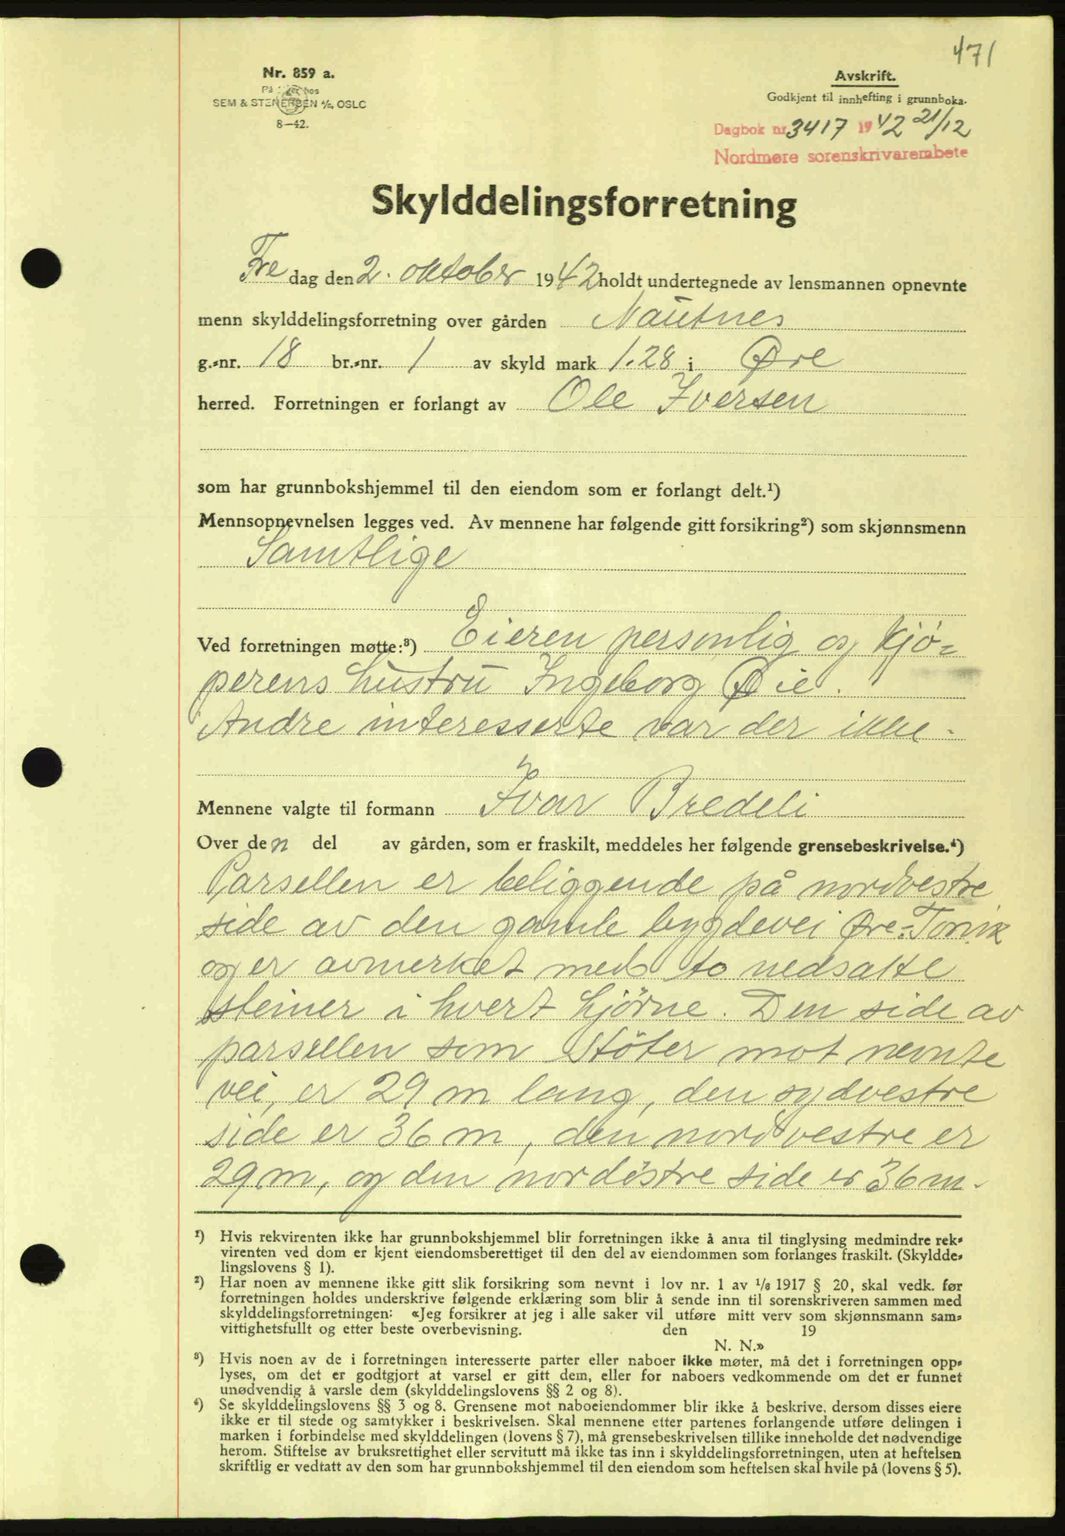 471
Nr. 859 a.
SEM & STENERSEN A/S, OSLO
8—42.
Avskrift.
Godkjent til innhefting i grunnboka.
Dagbok nr. 3417 1942 21/12
Nordmøre sorenskrivarembete
Skylddelingsforretning
Fre dag den 2. oktober 1942 holdt undertegnede av lensmannen opnevnte
menn skylddelingsforretning over gården Nautnes
g.-nr. 18 br.-nr. 1 av skyld mark 1.28 i Øre
herred. Forretningen er forlangt av Ole Iversen
som har grunnbokshjemmel til den eiendom som er forlangt delt.¹)
Mennsopnevnelsen legges ved. Av mennene har følgende gitt forsikring²) som skjønnsmenn
Samtlige
Ved forretningen møtte:³) Eieren personlig og kjö-
perens hustru Ingeborg Øie.
Andre interesserte var der ikke.
Mennene valgte til formann Ivar Bredeli
Over den del av gården, som er fraskilt, meddeles her følgende grensebeskrivelse.⁴)
Parsellen er beliggende på nordvestre
side av den gamle bygdevei Øre-Torvik
og er avmerket med to nedsatte
steiner i hvert hjörne. Den side av
parsellen som stöter mot nevnte
vei, er 29 m lang, den sydvestre
side er 36 m, den nordvestre er
29 m, og den nordöstre side er 36 m.
¹) Hvis rekvirenten ikke har grunnbokshjemmel blir forretningen ikke å anta til tinglysing medmindre rek-
virenten ved dom er kjent eiendomsberettiget til den del av eiendommen som forlanges fraskilt. (Skyldde-
lingslovens § 1).
²) Har noen av mennene ikke gitt slik forsikring som nevnt i lov nr. 1 av ¹/₆ 1917 § 20, skal vedk. før
forretningen holdes underskrive følgende erklæring som blir å sende inn til sorenskriveren sammen med
skylddelingsforretningen: «Jeg forsikrer at jeg i alle saker vil utføre mitt verv som skjønnsmann sam-
vittighetsfullt og etter beste overbevisning. den 19
N. N.»
³) Hvis noen av de i forretningen interesserte parter eller naboer ikke møter, må det i forretningen opp-
lyses, om det er godtgjort at varsel er gitt dem, eller for naboers vedkommende om det er funnet
unødvendig å varsle dem (skylddelingslovens §§ 2 og 8).
⁴) Se skylddelingslovens §§ 3 og 8. Grensene mot naboeiendommer blir ikke å beskrive, dersom disses eiere
ikke er til stede og samtykker i beskrivelsen. Skal mennene etter partenes forlangende utføre delingen i
marken i forbindelse med skylddelingen (lovens § 7), må grensebeskrivelsen tillike inneholde det nødvendige
herom. Stiftelse av bruksrettighet eller servitutt må ikke tas inn i skylddelingsforretningen, uten at heftelsen
skriftlig er vedtatt av den som har grunnbokshjemmel til den eiendom som heftelsen skal hvile på (lovens § 5).